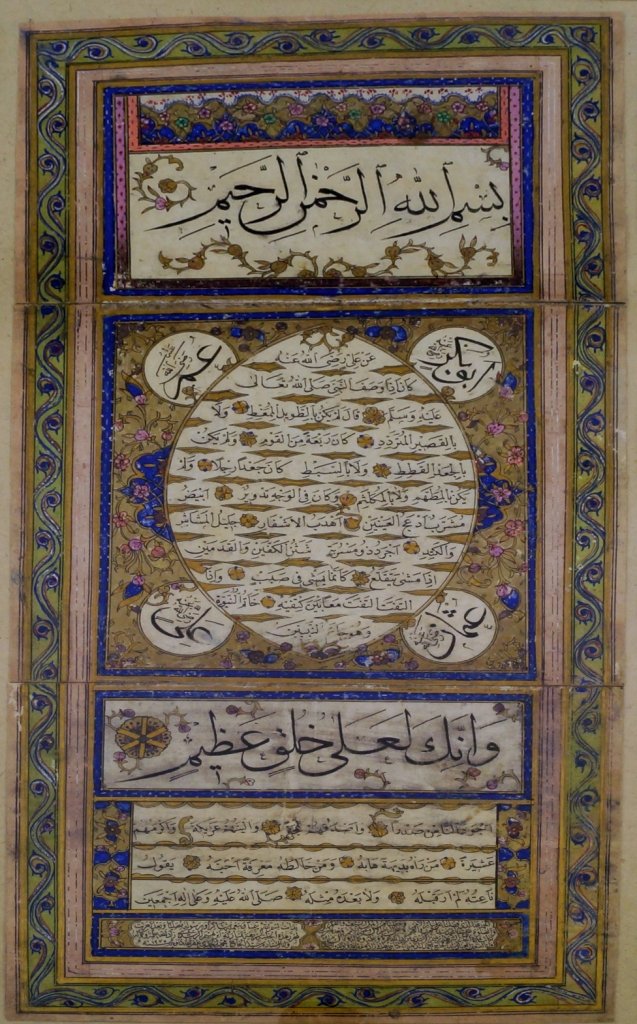 بِسْمِ اللهِ الرَّحْمٰنِ الرَّحِيمِ
ابو بكر رضى الله عنه
عمر رضى الله عنه
عن على رضى الله عنه
كان اذا وصف النبى صلى الله تعالى
عليه وسلم قال لم يكن بالطويل الممغط ولا
بالقصير المتردد كان ربعة من القوم ولم يكن
بالجعد القطط ولا بالسبط كان جعدا رجلا ولم
يكن بالمطهم ولا بالمكلثم وكان فى الوجه تدوير ابيض
مشرب ادعج العينين اهدب الاشفار جليل المشاش
والكتد اجرد ذو مسربة شثن الكفين والقدمين
اذا مشى يتقلع كانما يمشى فى صبب واذا
التفت التفت معا بين كتفيه خاتم النبوة
وهو خاتم النبيين
عثمان رضى الله عنه
على رضى الله عنه
وَاِنَّكَ لَعَلٰى خُلُقٍ عَظِيمٍ
اجود الناس صدرا واصدق الناس لهجة والينهم عريكة واكرمهم
عشيرة من راه بديهة هابه ومن خالطه معرفة احبه يقول
ناعته لم ار قبله ولا بعده مثله صلى الله عليه وعلى اله اجمعين